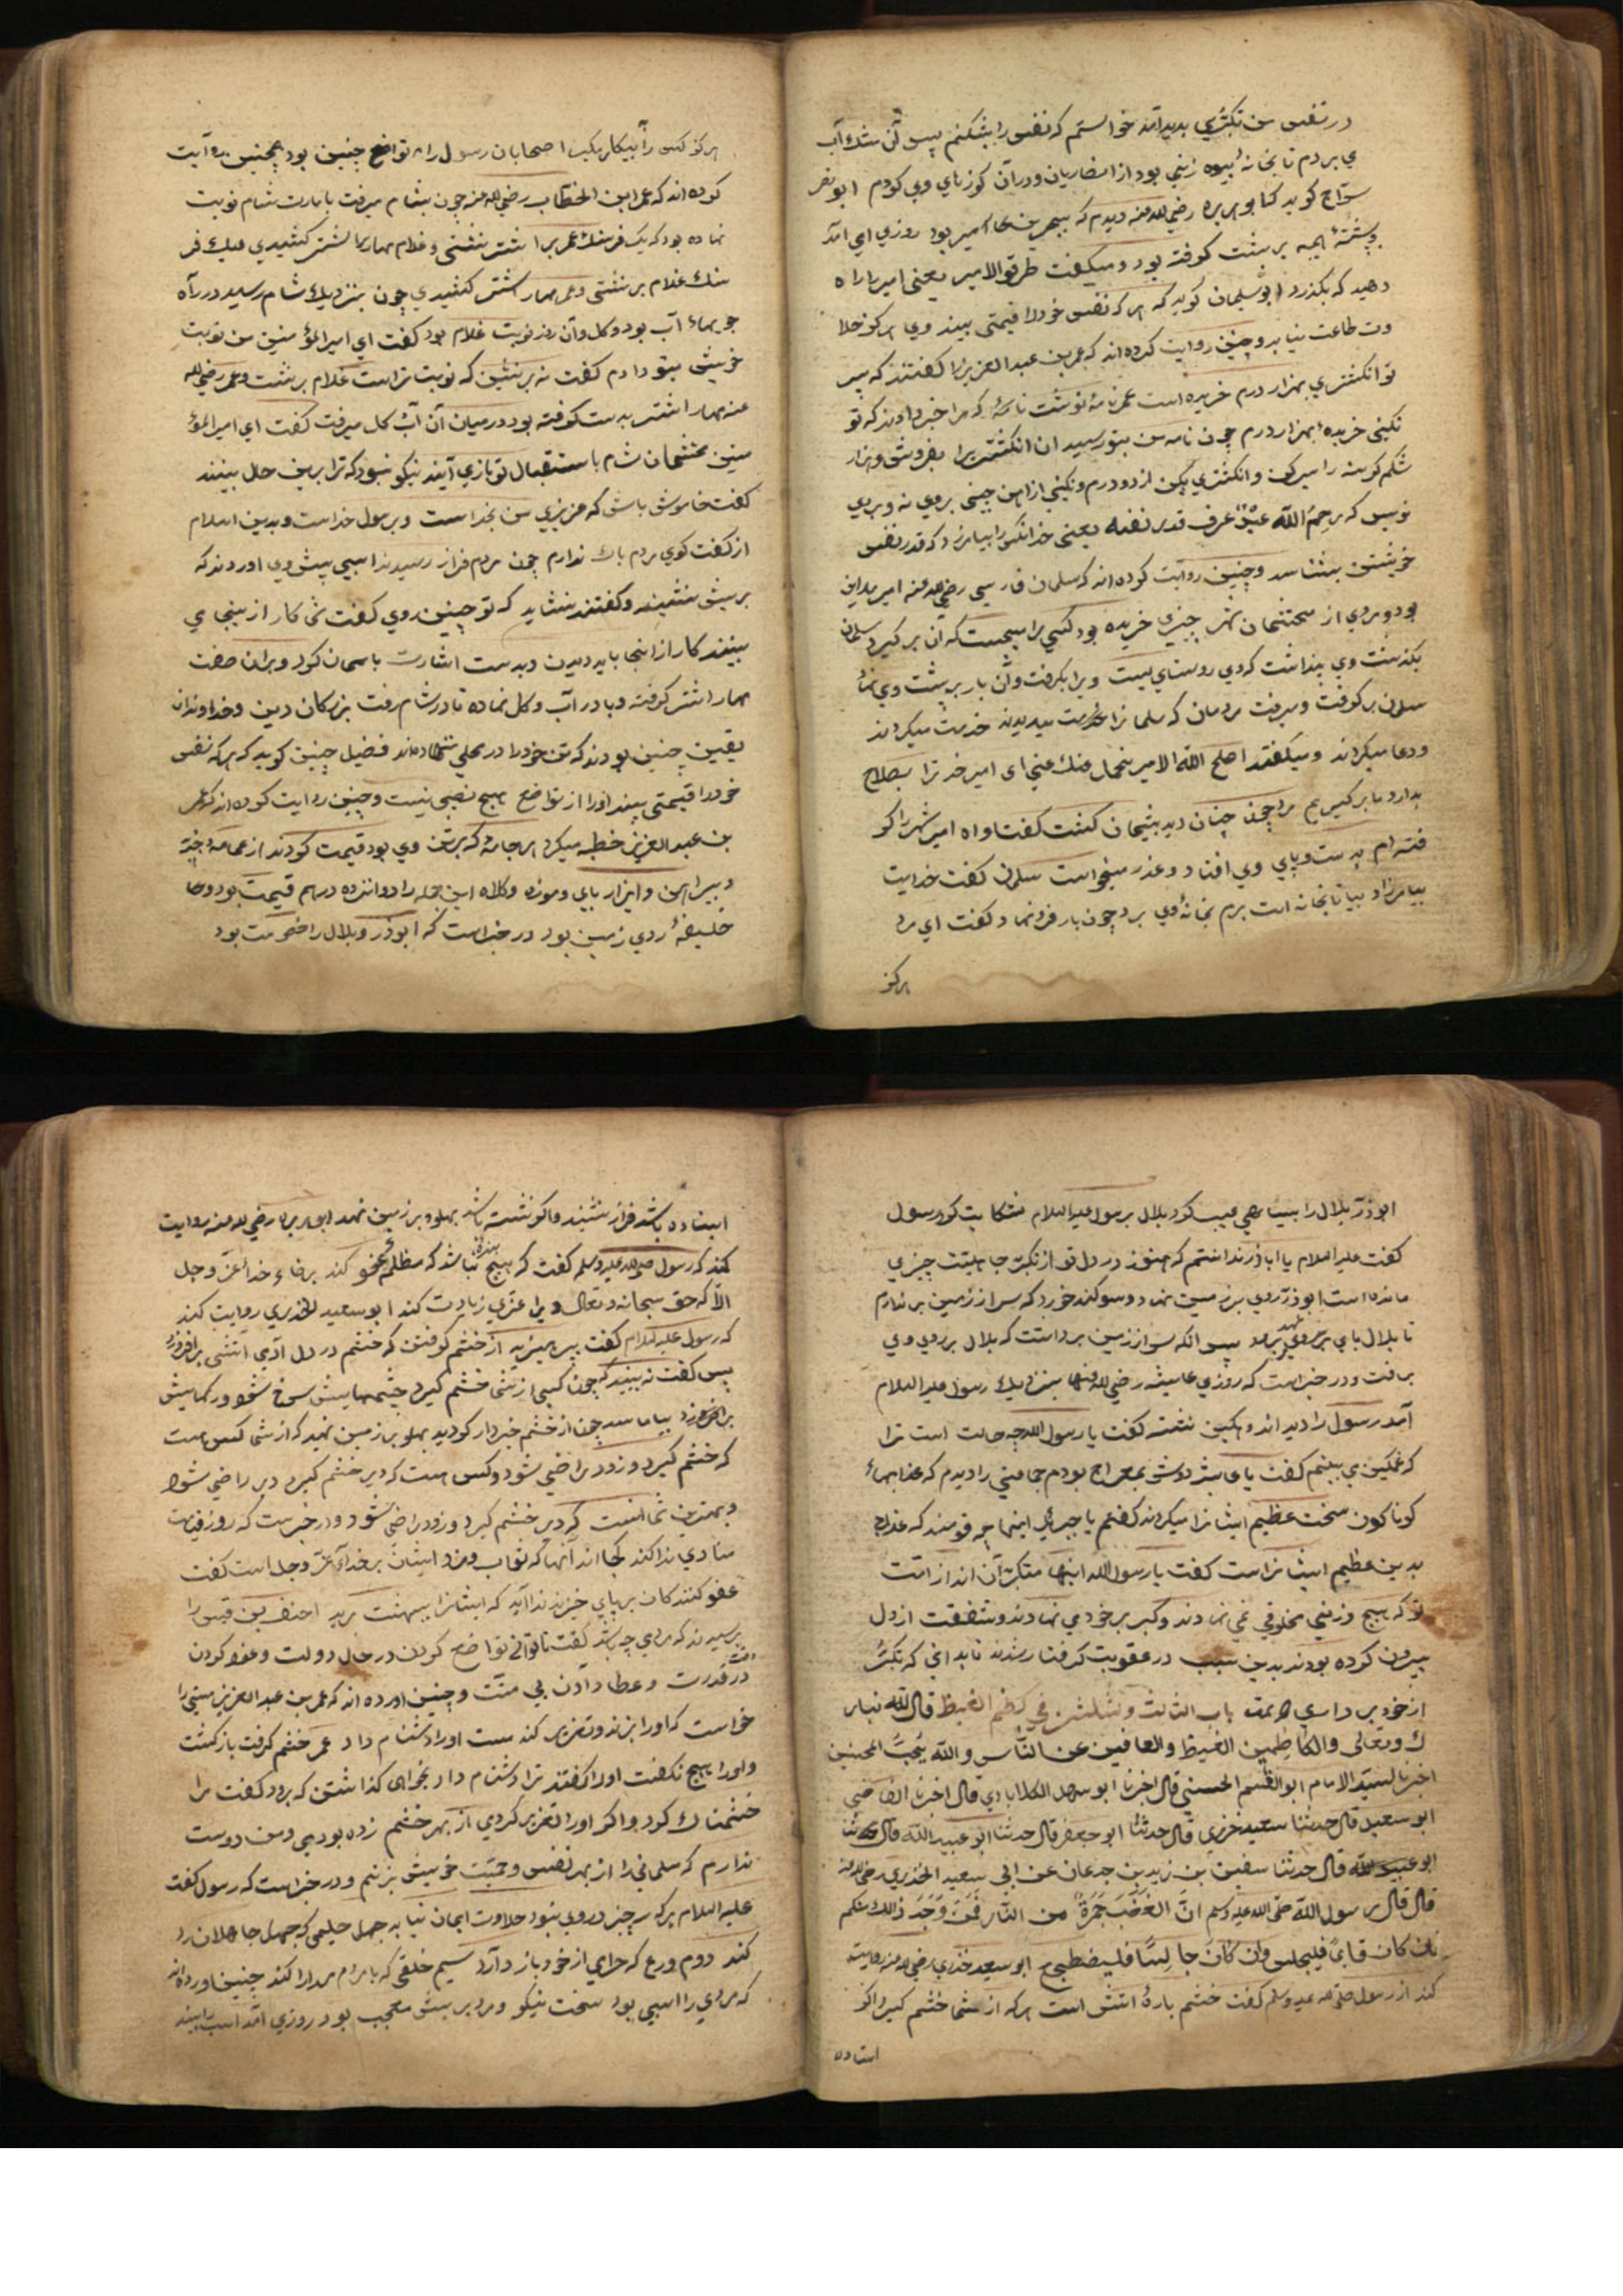 در نفس من تکبری بدید آمد خواستم که نفس را بشکنم پس آن مشک آب
می بردم تا بخانهٔ بیوه زنی بود از انصاریان و در آن کوزهای وی کردم ابو نصر
سراج کوید که ابو هریره رضی الله عنه دیدم که ببحرین امیر بود روزی می آمد
و پشتهٔ هیمه بر پشت کرفته بود و میکفت طرقوا الامیر یعنی امیر را راه
دهید که بکذرد ابو سلیمان کوید که هر که نفس خود را قیمتی بیند وی هرکز حلا
وت طاعت نیابد و چنین روایت کرده اند که عمر بن عبد العزیز را کفتند که پسر
تو انکشتری بهزار درم خریده است عمر نامهٔ نوشت نامهٔ که مرا خبر دادند که تو
نکینی خریدهٔ بهزار درم چون نامه من بتو رسید آن انکشتری را بفروش و هزار
شکم کرسنه را سیر کن و انکشتری بکن از دو درم و نکینی از آهن چینی بر وی نه و بر وی
نویس که رحم الله عبدا عرف قدر نفسه یعنی خدا آنکس را بیامرزد که قدر نفس
خویشتن بشناسد و چنین روایت کرده اند که سلمان فارسی رضی الله عنه امیر مداین
بود و مردی از محتشمان شهر چیزی خریده بود کسی را میجست که آن بر کیرد سلمان
بکذشت وی پنداشت که وی روستایست ویرا بکرفت و آن بار بر پشت وی نهاد
سلمان بر کرفت و میرفت مردمان که سلمانرا خدمت بدیدند خدمت میکردند
و دعا میکردند و میکفتند اصلح الله الامیر نحمل عنک یعنی ای امیر خدا ترا بصلاح
بدارد ما بر کیریم مرد چون چنان دید پشیمان کشت کفت اواه امیر شهر را کر
فته ام بدست و پای وی افتاد و عذر میخواست سلمان کفت خدایت
بیامرزاد بیا تا بخانه ات برم بخانهٔ وی برد چون بار فرو نهاد کفت ای مرد
هرکز
هرکز کس را بیکار مکیر اصحابان رسول را تواضع چنین بود همچنین روایت
کرده اند که عمر ابن الخطاب رضی الله عنه چون بشام میرفت با مارت شام نوبت
نهاده بود که یک فرسنک عمر بر اشتر نشستی و غلام مهار اشتر کشیدی و یک فر
سنک غلام بر نشستی و عمر مهار اشتر کشیدی چون بنزدیک شام رسید در راه
جویهاء آب بود و کل و آن روز نوبت غلام بود کفت ای امیر المؤمنین من نوبت
خویش بتو دادم کفت نه بر نشین که نوبت تراست غلام بر نشست و عمر رضی الله
عنه مهار اشتر بدست کرفته بود در میان آن آب و کل میرفت کفت ای امیر المؤ
منین محتشمان شام باستقبال تو بازمی آیند نیکو نبود که ترا برین حال بینند
کفت خاموش باش که عزیزی من بخداست و برسول خداست و بدین اسلام
از کفت کوی مردم باک ندارم چون مردم فراز رسیدند اسبی پیش وی اوردند که
بر نشین ننشیند و کفتند نشاید که تو چنین روی کفت شما کار از اینجا می
بینند کار از انجا باید دیدن و بدست اشارت باسمان کرد و بر آن صفت
مهار اشتر کرفته و پا در آب و کل نهاده تا در شام رفت بزرکان دین و خداوندان
یقین چنین بودند که تن خود را در محلی ننهادندی فضیل چنین کوید که هر که نفس
خود را قیمتی بیند او را از تواضع هیچ نصیبی نیست و چنین روایت کرده اند که عمر
بن عبد العزیز خطبه میکرد هر جامه که بر تن وی بود قیمت کردند از عمامه و جبه
و پیراهن و ایزار پای و موزه و کلاه این جمله را دوانزده درهم قیمت بود و حا
خلیفهٔ روی زمین بود در خبر است که ابوذر و بلال را خصومت بود
ابوذر بلال را بسیاهی عیب کرد بلال برسول علیه السلام شکایت کرد رسول
کفت علیه السلام یا ابا ذر ندانستم که هنوز در دل تو از تکبر جاهلیت چیزی
مانده است ابوذر روی بر زمین نهاد و سوکند خورد که سر از زمین بر ندارم
تا بلال پای بر روی نهد پس آنکه سر از زمین برداشت که بلال بر روی وی
برفت و در خبر است که روزی عایشه رضی الله عنها بنزدیک رسول علیه السلام
آمد رسول را دید اندوهکین نشسته کفت یا رسول الله چه حالت است ترا
که غمکین می بینم کفت یا عایشه دوش بمعراج بودم جماعتی را دیدم که عذابهاء
کوناکون سخت عظیم ایشانرا میکردند کفتم یا جبرئیل اینها چه قومند که عذاب
بدین عظیم ایشانراست کفت یا رسول الله اینها متکبرانند از امت
تو که هیچ وزنی مخلوقی نمی نهادند و کبر بر خود می نهادند و شفقت از دل
بیرون کرده بودند بدین سبب در عقوبت کرفتار شدند تا بدانی که تکبر
از خود بر داری باب الثالث و ثلثین فی کظم الغیظ قال الله تبار
ک و تعالی والکاظمین الغیظ والعافین عن الناس والله یحب المحسنین
اخبرنا السید الامام ابو القسم الحسینی قال اخبرنا ابو سهل الکلابادی قال اخبرنا القاضی
ابو سعید قال حدثنا سعید خزری قال حدثنا ابو جعفر قال حدثنا ابو عبید الله قال حدثنا
ابو عبید الله قال حدثنا سفین بن زید بن جدعان عن ابی سعید الخدری رضی الله عنه
قال قال رسول الله صلی الله علیه وسلم ان الغضب جمرة من النار فمن وجد ذلك منکم
فان کان قایما فلیجلس وان کان جالسا فلیضطجع ابو سعید خدری رضی الله عنه روایت
کند از رسول صلی الله علیه وسلم کفت خشم پارهٔ آتش است هر که از شما خشم کیرد اکر
استاده
استاده باشد فراز نشیند و اکر نشسته باشد پهلو بر زمین نهد ابو هریره رضی الله عنه روایت
کند که رسول صلی الله علیه وسلم کفت که هیچ بنده نباشد که مظلمهٔ عفو کند برضاء خدا عز و جل
الا که حق سبحانه و تعالی ویرا عزی زیادت کند ابو سعید الخدری روایت کند
که رسول علیه السلام کفت بپرهیزید از خشم کرفتن که خشم در دل آدمی آتشی بر افروزد
پس کفت نه بینید که چون کسی از شما خشم کیرد چشمهایش سرخ شود و رکهایش
بر خیزد بیاماسد چون از خشم خبردار کردید پهلو بر زمین نهید که از شما کس هست
که خشم کیرد و زود راضی شود و کس هست که دیر خشم کیرد دیر راضی شود
و بهترین شما آنست که دیر خشم کیرد و زود راضی شود و در خبر است که روز قیامت
منادی ندا کند کجا اند آنها که ثواب و مزد ایشان بر خدای عز و جل است کفت
عفو کنندکان بر پای خیزند ندا آید که ایشانرا ببهشت برید احنف بن قیس را
پرسیدند که مردی چه باشد کفت تا توانی تواضع کردن در حال دولت و عفو کردن
در وقت قدرت و عطا دادن بی منت و چنین اورده اند که عمر بن عبد العزیز مستی را
خواست که اورا بزند و تعزیر کند مست اورا دشنام داد عمر خشم کرفت باز کشت
و اورا هیچ نکفت اورا کفتند ترا دشنام داد بخواهی کذاشتن که برود کفت مرا
خشمناک کرد و اکر اورا تعزیر کردمی از بهر خشم زده بودمی و من دوست
ندارم که مسلمانی را از بهر نفس و حمیت خویش بزنم و در خبر است که رسول کفت
علیه السلام هر که سه چیز در وی نبود حلاوت ایمان نیابد حلیمی که جهل جاهلان رد
کند دوم ورع که حرامی از خود باز دارد سیم خلقی که با مردم مدارا کند چنین اورده اند
که مردی را اسبی بود سخت نیکو و مرد برش معجب بود روزی آمد اسب را دید